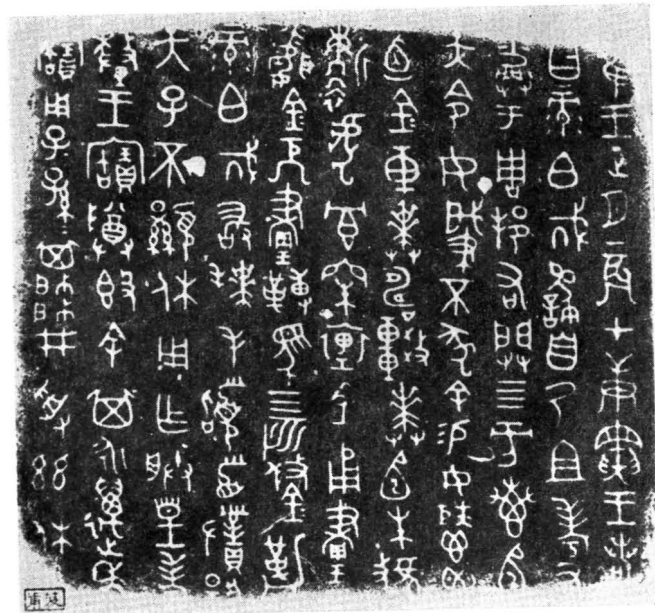 隹王正月辰才庚寅王若
曰彔白𢦚繇自乃且考又
于周邦右闢四方叀
天令女肇不墜余易女
卣金車𠦪幬較𠦪朱虢
靳虎冟朱裏金甬畫
金厄畫轉馬四匹鋚勒
彔白𢦚敢拜手𩒨首對揚
天子不顯休用乍朕皇考
釐王寶尊𣪘余其永萬年
寶用子子孫孫其帥井受茲休